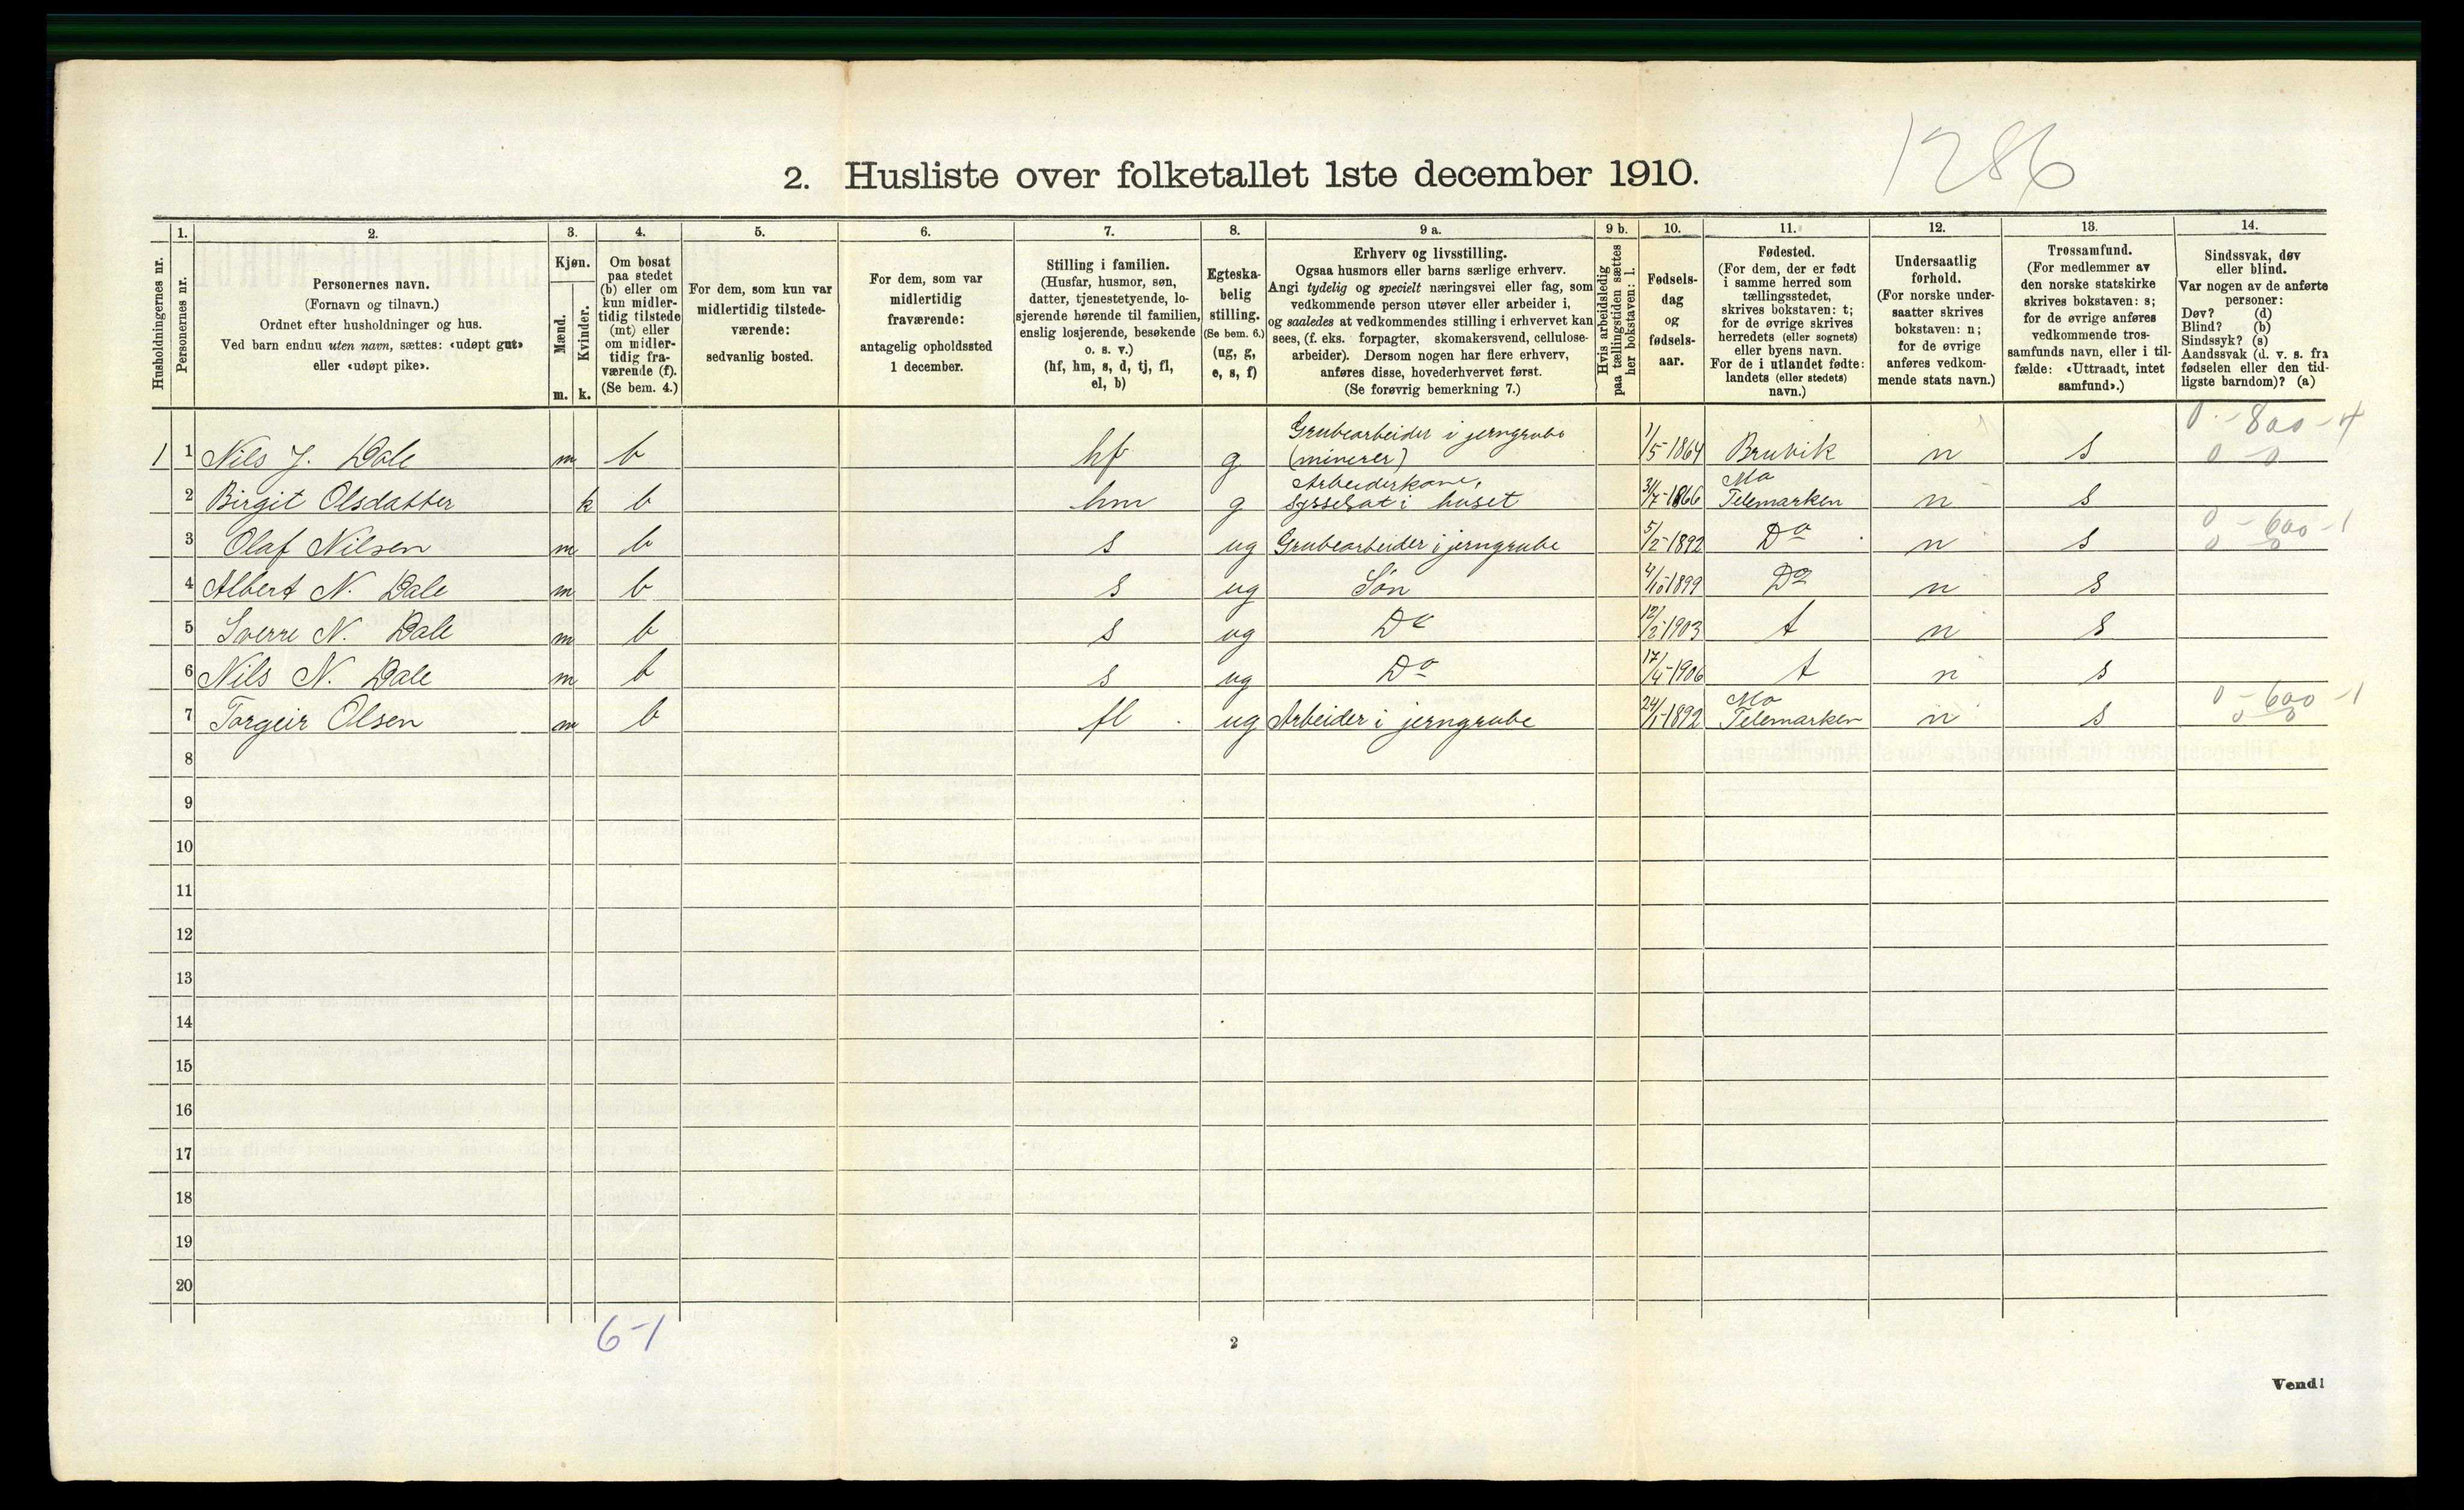 1286
2. Husliste over folketallet 1ste december 1910.
Husholdningernes nr.
1.
Personernes nr.
2.
Personernes navn.
(Fornavn og tilnavn.)
Ordnet efter husholdninger og hus.
Ved barn endnu uten navn, sættes: «udøpt gut»
eller «udøpt pike».
3.
Kjøn.
Mænd.
Kvinder.
m. k.
4.
Om bosat
paa stedet
(b) eller om
kun midler-
tidig tilstede
(mt) eller
om midler-
tidig fra-
værende (f).
(Se bem. 4.)
5.
For dem, som kun var
midlertidig tilstede-
værende:
sedvanlig bosted.
6.
For dem, som var
midlertidig
fraværende:
antagelig opholdssted
1 december.
7.
Stilling i familien.
(Husfar, husmor, søn,
datter, tjenestetyende, lo-
sjerende hørende til familien,
enslig losjerende, besøkende
o. s. v.)
(hf, hm, s, d, tj, fl,
el, b)
8.
Egteska-
belig
stilling.
(Se bem. 6.)
(ug, g,
e, s, f)
9 a.
Erhverv og livsstilling.
Ogsaa husmors eller barns særlige erhverv.
Angi tydelig og specielt næringsvei eller fag, som
vedkommende person utøver eller arbeider i,
og saaledes at vedkommendes stilling i erhvervet kan
sees, (f. eks. forpagter, skomakersvend, cellulose-
arbeider). Dersom nogen har flere erhverv,
anføres disse, hovederhvervet først.
(Se forøvrig bemerkning 7.)
9 b.
Hvis arbeidsledig
paa tællingstiden sættes
her bokstaven: l.
10.
Fødsels-
dag
og
fødsels-
aar.
11.
Fødested.
(For dem, der er født
i samme herred som
tællingsstedet,
skrives bokstaven: t;
for de øvrige skrives
herredets (eller sognets)
eller byens navn.
For de i utlandet fødte:
landets (eller stedets)
navn.)
12.
Undersaatlig
forhold.
(For norske under-
saatter skrives
bokstaven: n;
for de øvrige
anføres vedkom-
mende stats navn.)
13.
Trossamfund.
(For medlemmer av
den norske statskirke
skrives bokstaven: s;
for de øvrige anføres
vedkommende tros-
samfunds navn, eller i til-
fælde: «Uttraadt, intet
samfund».)
14.
Sindssvak, døv
eller blind.
Var nogen av de anførte
personer:
Døv? (d)
Blind? (b)
Sindssyk? (s)
Aandssvak (d. v. s. fra
fødselen eller den tid-
ligste barndom)? (a)
1 1 Nils J. Dale m b hf g Grubearbeider i jerngrube (minerer) 1/5-1864 Bruvik n s 0-800-4 0-0
2 Birgit Olsdatter k b hm g Arbeiderkone, sysselsat i huset 31/7-1866 Mo Telemarken n s
3 Olaf Nilsen m b s ug Grubearbeider i jerngrube 5/2-1892 Do n s 0-600-1 0-0
4 Albert N. Dale m b s ug Søn 4/10 1899 Do n s
5 Sverre N. Dale m b s ug Do 12/2-1903 t n s
6 Nils N. Dale m b s ug Do 17/4-1906 t n s
7 Torgeir Olsen m b fl ug Arbeider i jerngrube 24/1-1892 Mo Telemarken n s 0-600-1 0-0
8
9
10
11
12
13
14
15
16
17
18
19
20
6-1
2
Vend!